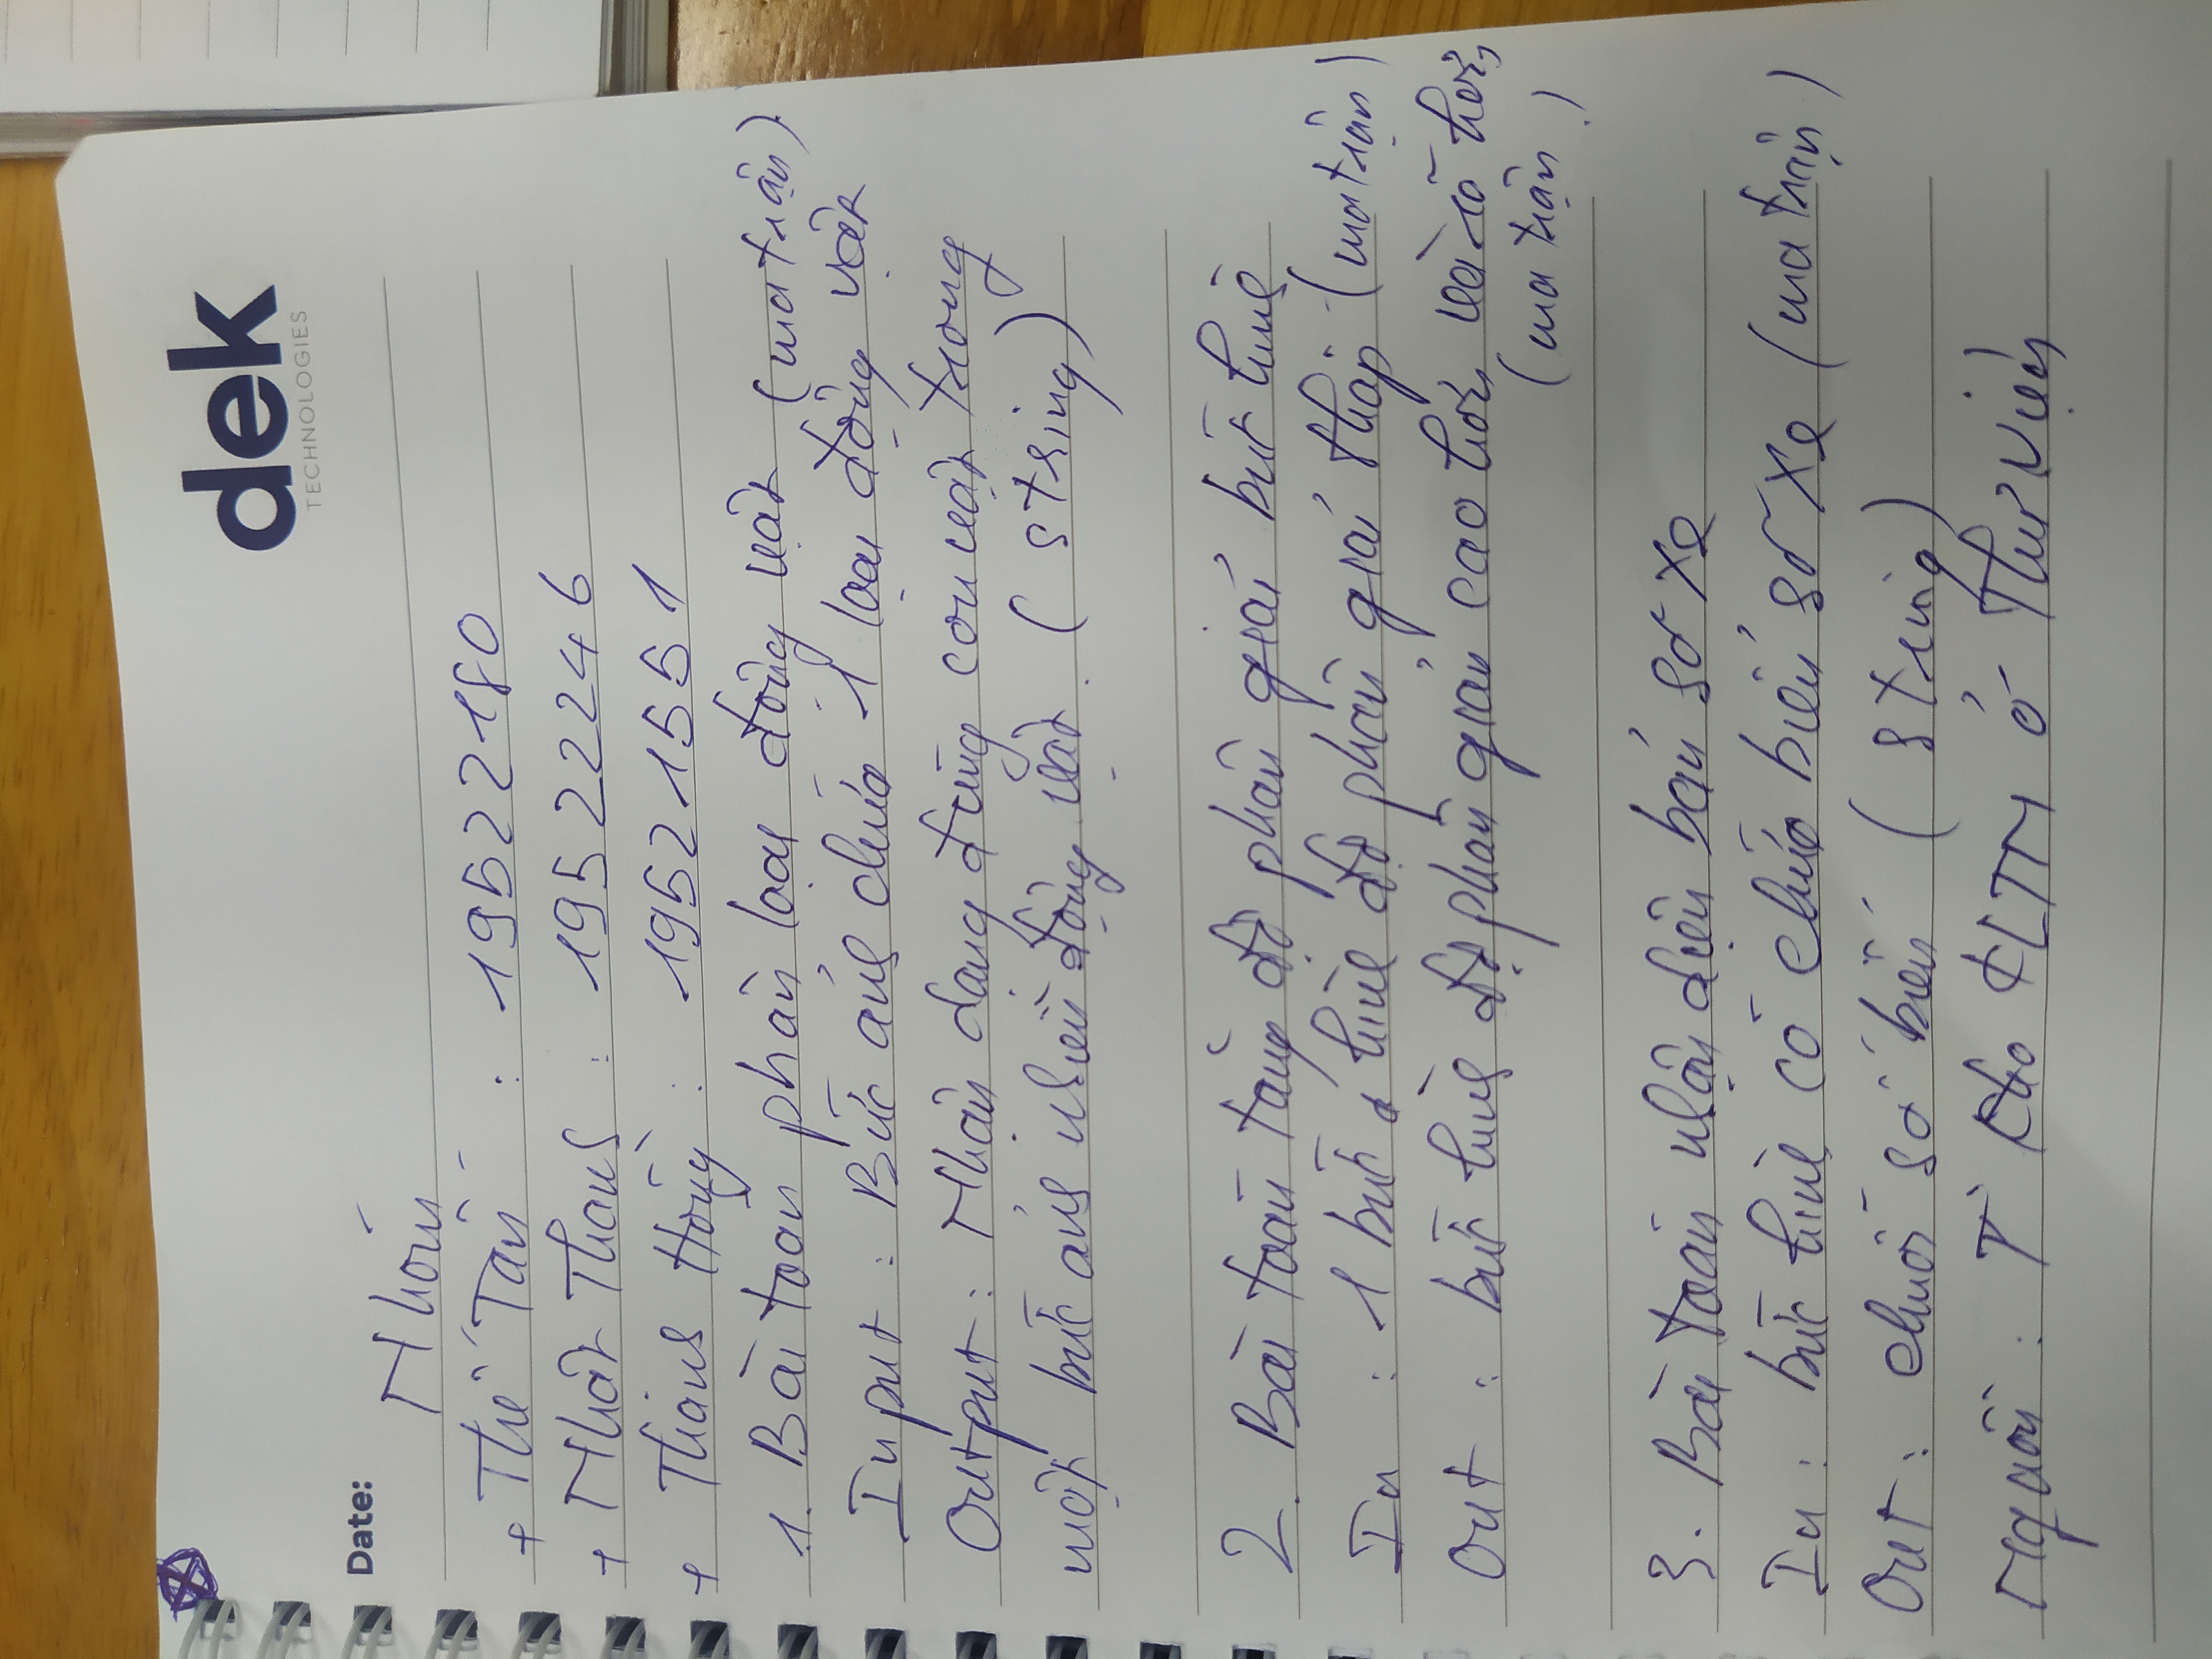 dek
TECHNOLOGIES
Date:
Nhóm
+ Thế Tấn : 19522180
+ Nhật Thanh : 19522246
+ Thanh Hồng : 19521551
1. Bài toán phân loại động vật (ma trận)
Input : Bức ảnh chứa 1 loại động vật
Output : Nhận dạng đúng con vật trong
một bức ảnh nhiều động vật. (string)
2. Bài toán tăng độ phân giải bức hình
In : 1 bức hình độ phân giải thấp (ma trận)
Out : bức hình độ phân giải cao hơn và rõ hơn,
(ma trận)
3. Bài toán nhận diện bản số xe
In : bức hình có chứa biển số xe (ma trận)
Out : chuỗi số biển (string)
Nguồn : Từ kho KLTN ở Thư viện